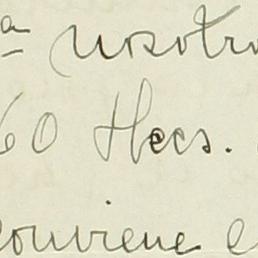 a nosotro
60 Hecs.
conviene e